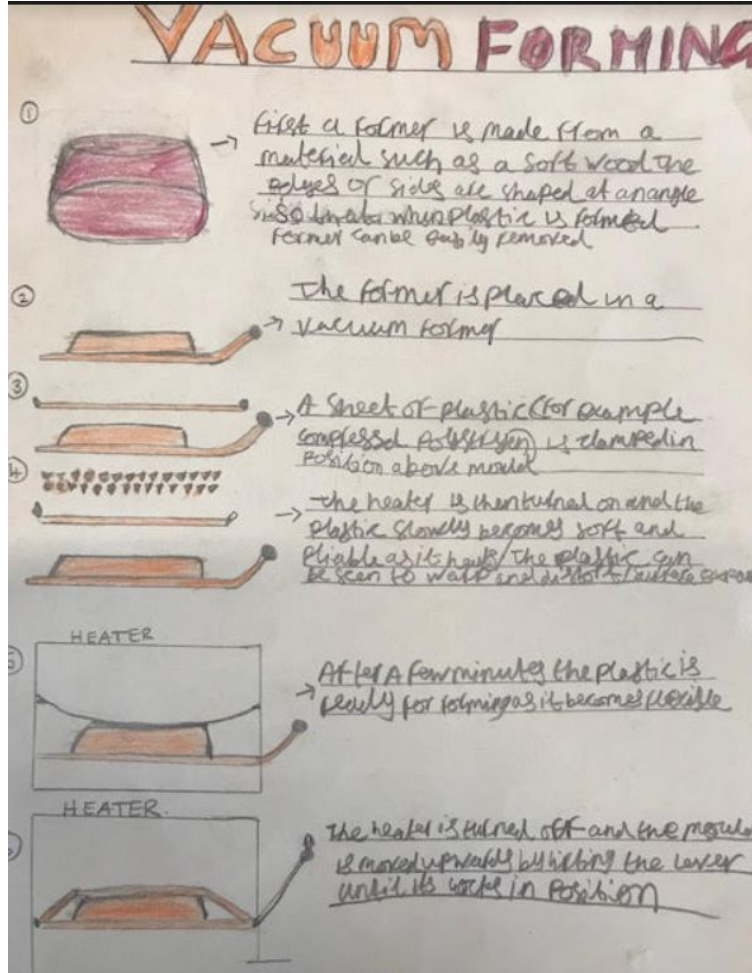 VACUUM FORMING
①
First a former is made from a
material such as a soft wood the
edges or sides are shaped at an angle
so that when plastic is formed
former can be easily removed
②
The former is placed in a
vacuum former
③
A sheet of plastic (for example
compressed polystryen) is clamped in
position above mould
④
The heater is then turned on and the
plastic slowly becomes soft and
pliable as it heats/The plastic can
be seen to warp and distort/surface
HEATER
5
After A few minutes the plastic is
ready for forming as it becomes flexible
HEATER.
The heater is turned off and the mould
is moved upwards by lifting the lever
until its in Position